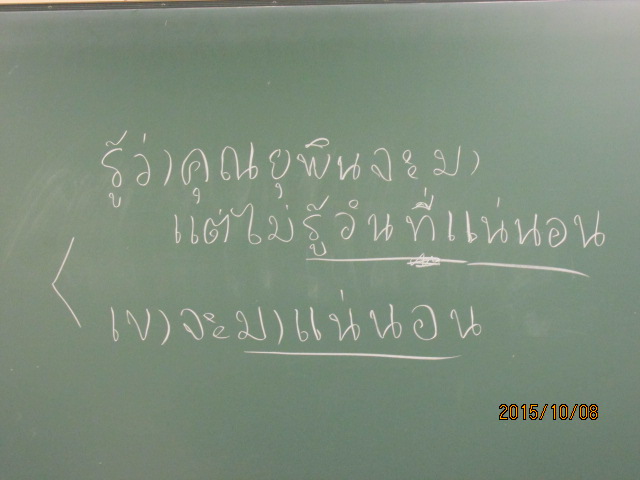 รู้ว่าคุณยุพินจะมา
แต่ไม่รู้วันที่แน่นอน
เขาจะมาแน่นอน
2015/10/08